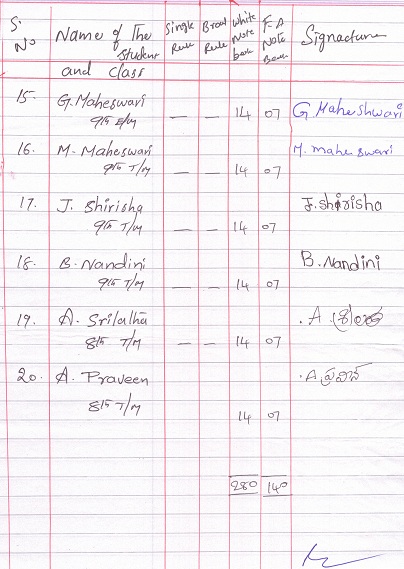 S. No Name of The Student and class Single Rule Broad Rule White Note book F-A Note Book Signacture
15. G. Maheswari 9th E/M — — 14 07 G Maheshwari
16. M. Maheswari 9th T/M — — 14 07 M. maheswari
17. J. Shirisha 9th T/M — — 14 07 J. shirisha
18. B. Nandini 9th T/M — — 14 07 B. Nandini
19. A. Srilatha 8th T/M — — 14 07 . A.
20. A. Praveen 8th T/M 14 07 . A ప్రవీన్
280 140